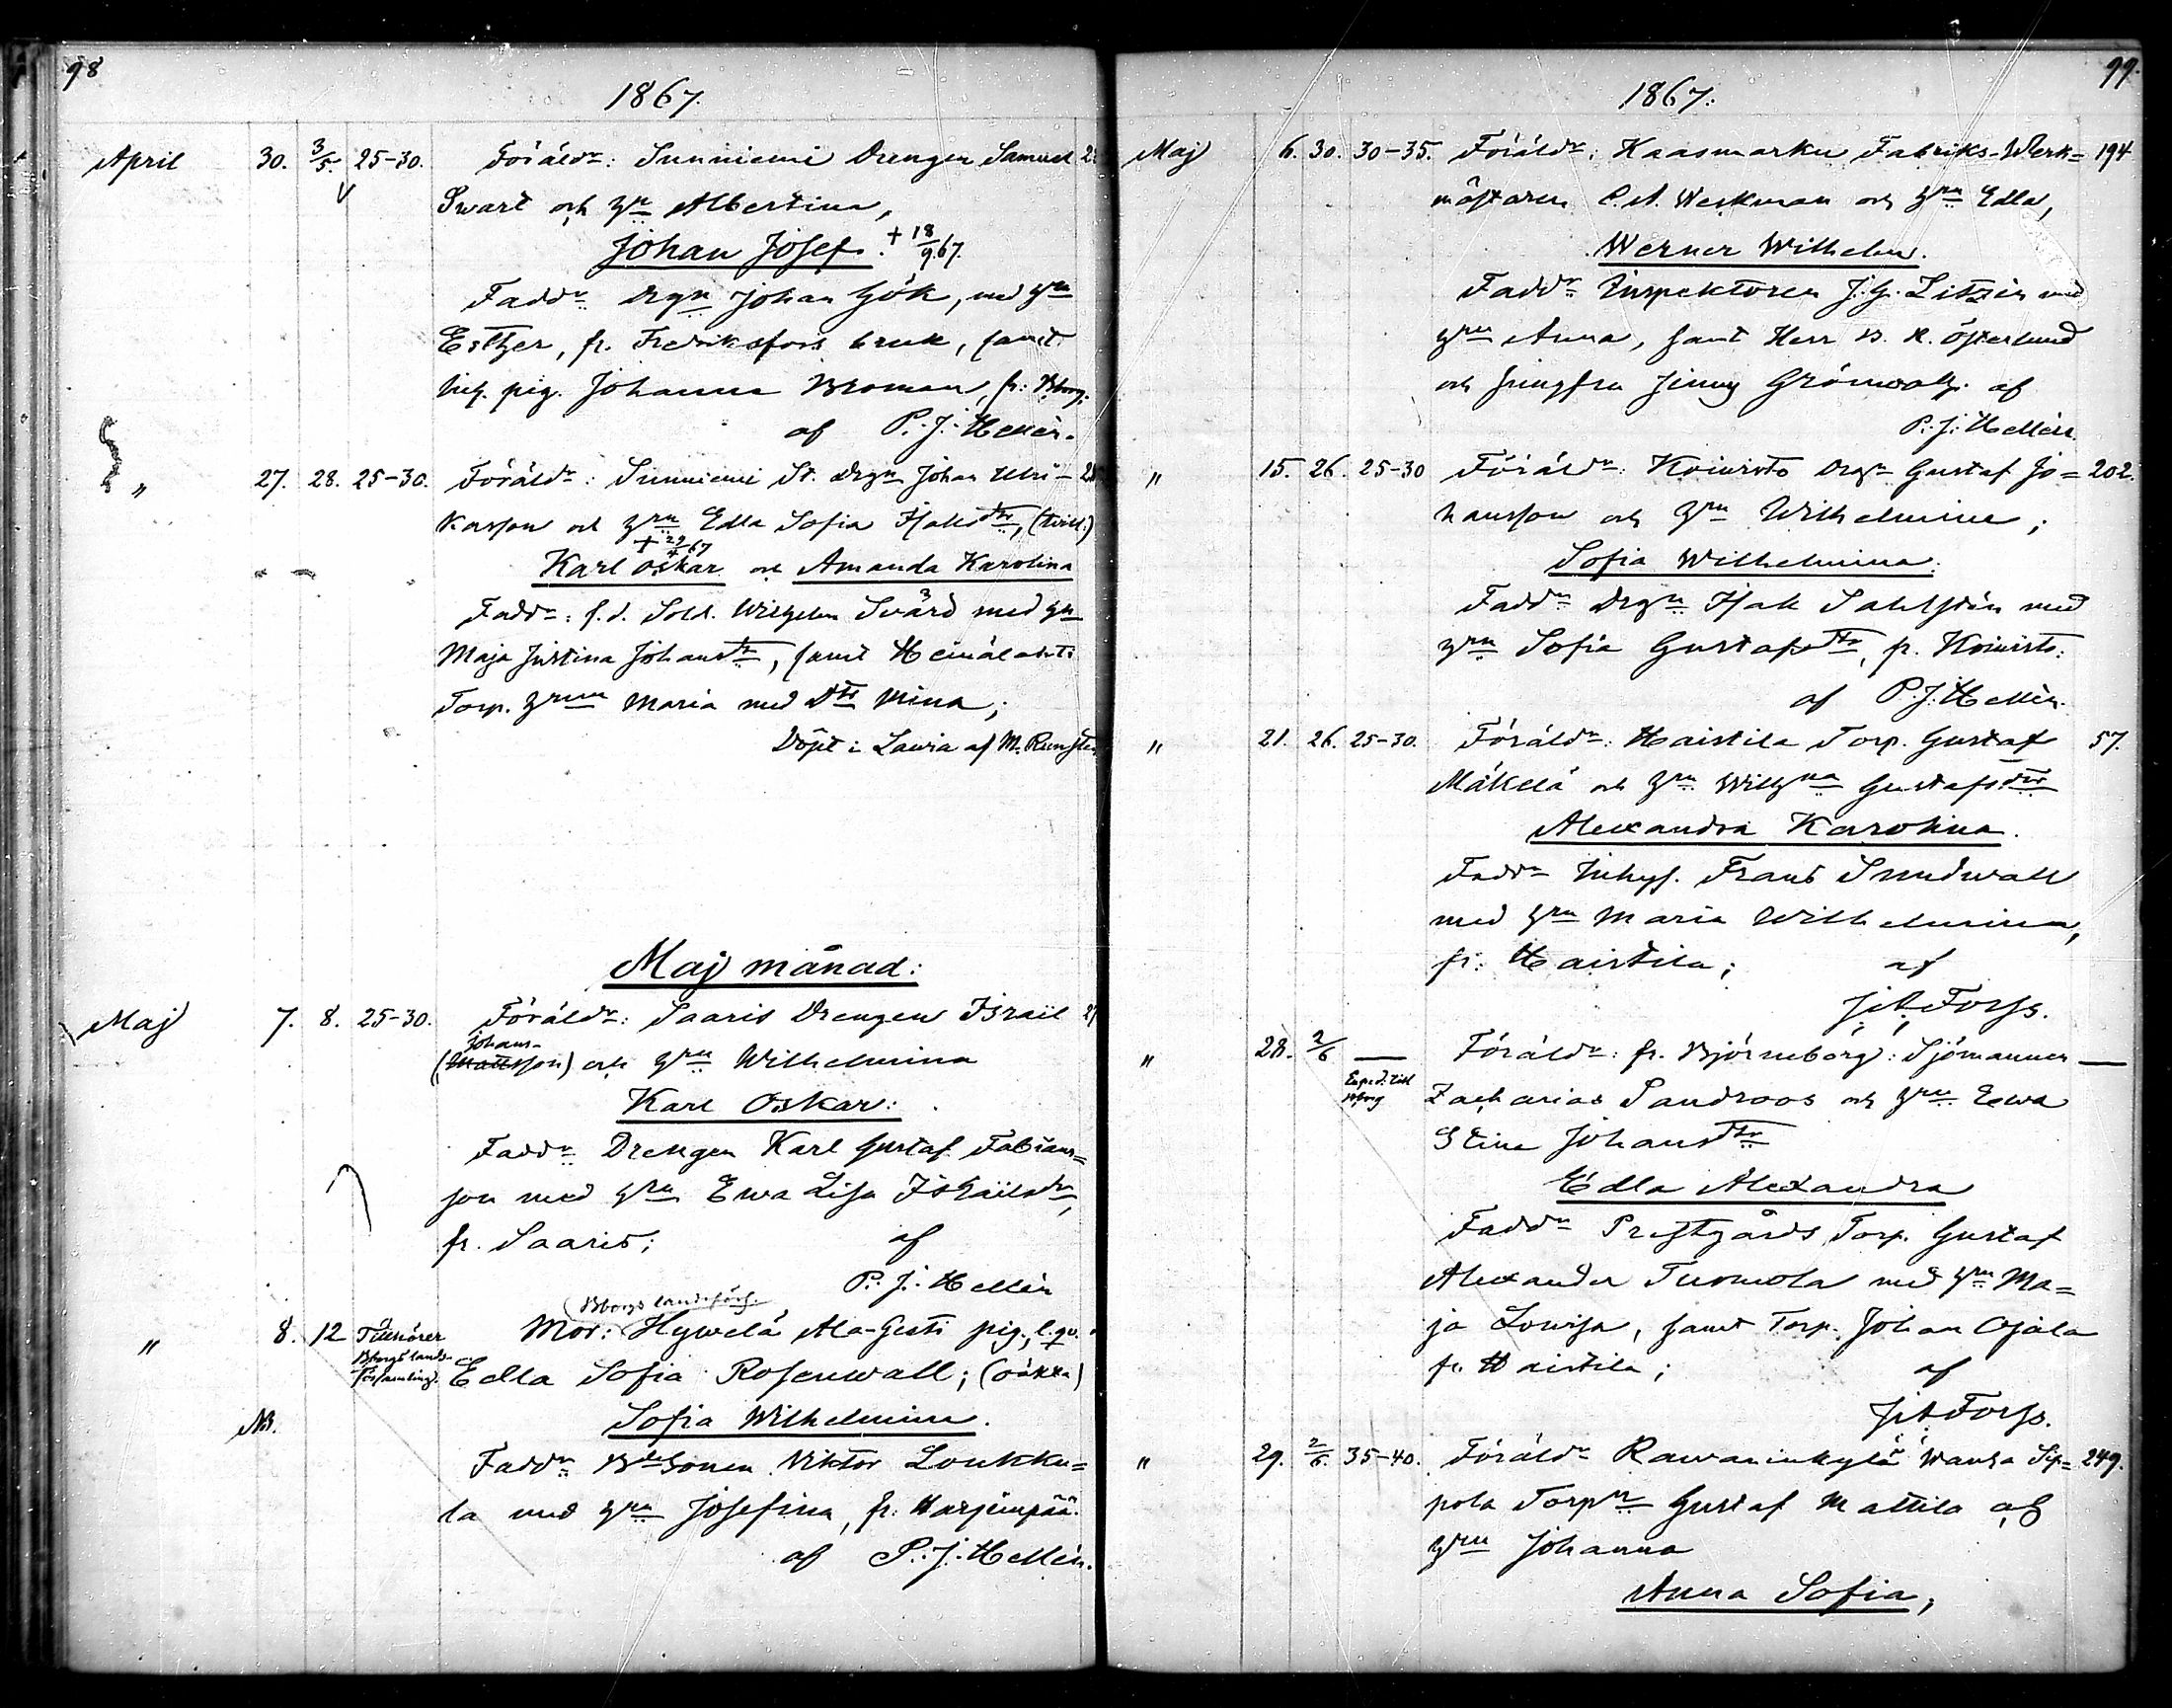 98
1867.
April 30. 3/5. 25-30. Föräldr: Sunniemi Drengen Samuel
Swart och hn Albertina,
Johan Josef. † 18/9.67.
Faddr Drgn Johan Gök, med hru
Esther, fr. Fredriksfors bruk, samt
inh. pig. Johanna Broman, fr: Bborg.
af P. J. Hellén.
" 27. 28. 25-30. Föräldr: Sunniemi St. Drgn Johan Ulri-
kasson och hru Edla Sofia Isaksdtr, (tvill.)
† 29/4 67
Karl Oskar och Amanda Karolina
Faddr: f.d. Sold. Wilhelm Svärd med hn
Maja Justina Johansdtr, samt Heinälahti
Torp. hrun Maria med Dtr Mina;
Döpt i Lavia af M. Rungsten
Maj månad:
Maj 7. 8. 25-30. Föräldr: Saaris Drengen Israil
Johans-
(Mattsson) och hru Wilhelmina
Karl Oskar:
Faddr Drengen Karl Gustaf Fabians=
son med hru Ewa Lisa Israilsdr,
fr. Saaris; af
P. J. Hellén
(Bborgs landsförs.
" 8. 12 Tillhörer Mor: Hyvelä Ala-Gesti pig., l. qv.
Bborgs lands-
församling. Edla Sofia Rosenwall; (oäkta)
NB. Sofia Wilhelmina.
Faddr Bdesonen Viktor Loukku=
la med hru Josefina, fr: Harjunpää.
af P. J. Hellén.
99.
1867.
Maj 6. 30. 30-35. Föräldr: Kaasmarku Fabriks-Werk= 194
mästaren C. A. Weckman och hru Edla,
Werner Wilhelm.
Faddr Inspektoren J. G. Litzén med
hru Anna, samt Herr B. R. Österlund
och jungfru Jenny Grönwall. af
P. J. Hellén.
" 15. 26. 25-30 Föräldr: Koivisto Drgn Gustaf Jo= 202.
hansson och hru Wilhelmina;
Sofia Wilhelmina:
Faddr Drgn Isak Sahlstén med
hru Sofia Gustafsdtr, fr. Koivisto:
af P. J. Hellén.
" 21. 26. 25-30. Föräldr: Haistila Torp. Gustaf 57.
Mäkelä och hru Wilhna Gustafsdtr
Alexandra Karolina.
Faddr Inhys. Frans Sundwall
med hru Maria Wilhelmina,
fr: Haistila; af
J. A. Forss.
" 28. 2/6 — Föräldr: fr. Björneborg: Sjömannen —
Exped. till
Bborg Zacharias Sandroos och hru Ewa
Stina Johansdtr
Edla Alexandra
Faddr Prestgårds Torp. Gustaf
Alexander Tuomola med hru Ma=
ja Lovisa, samt Torp. Johan Ojala
fr. Haistila; af
J. A. Forss.
" 29. 2/6. 35-40. Föräldr Ravaninkylä Wanha Sip= 249.
pola Torpn Gustaf Mattila och
hru Johanna
Anna Sofia,